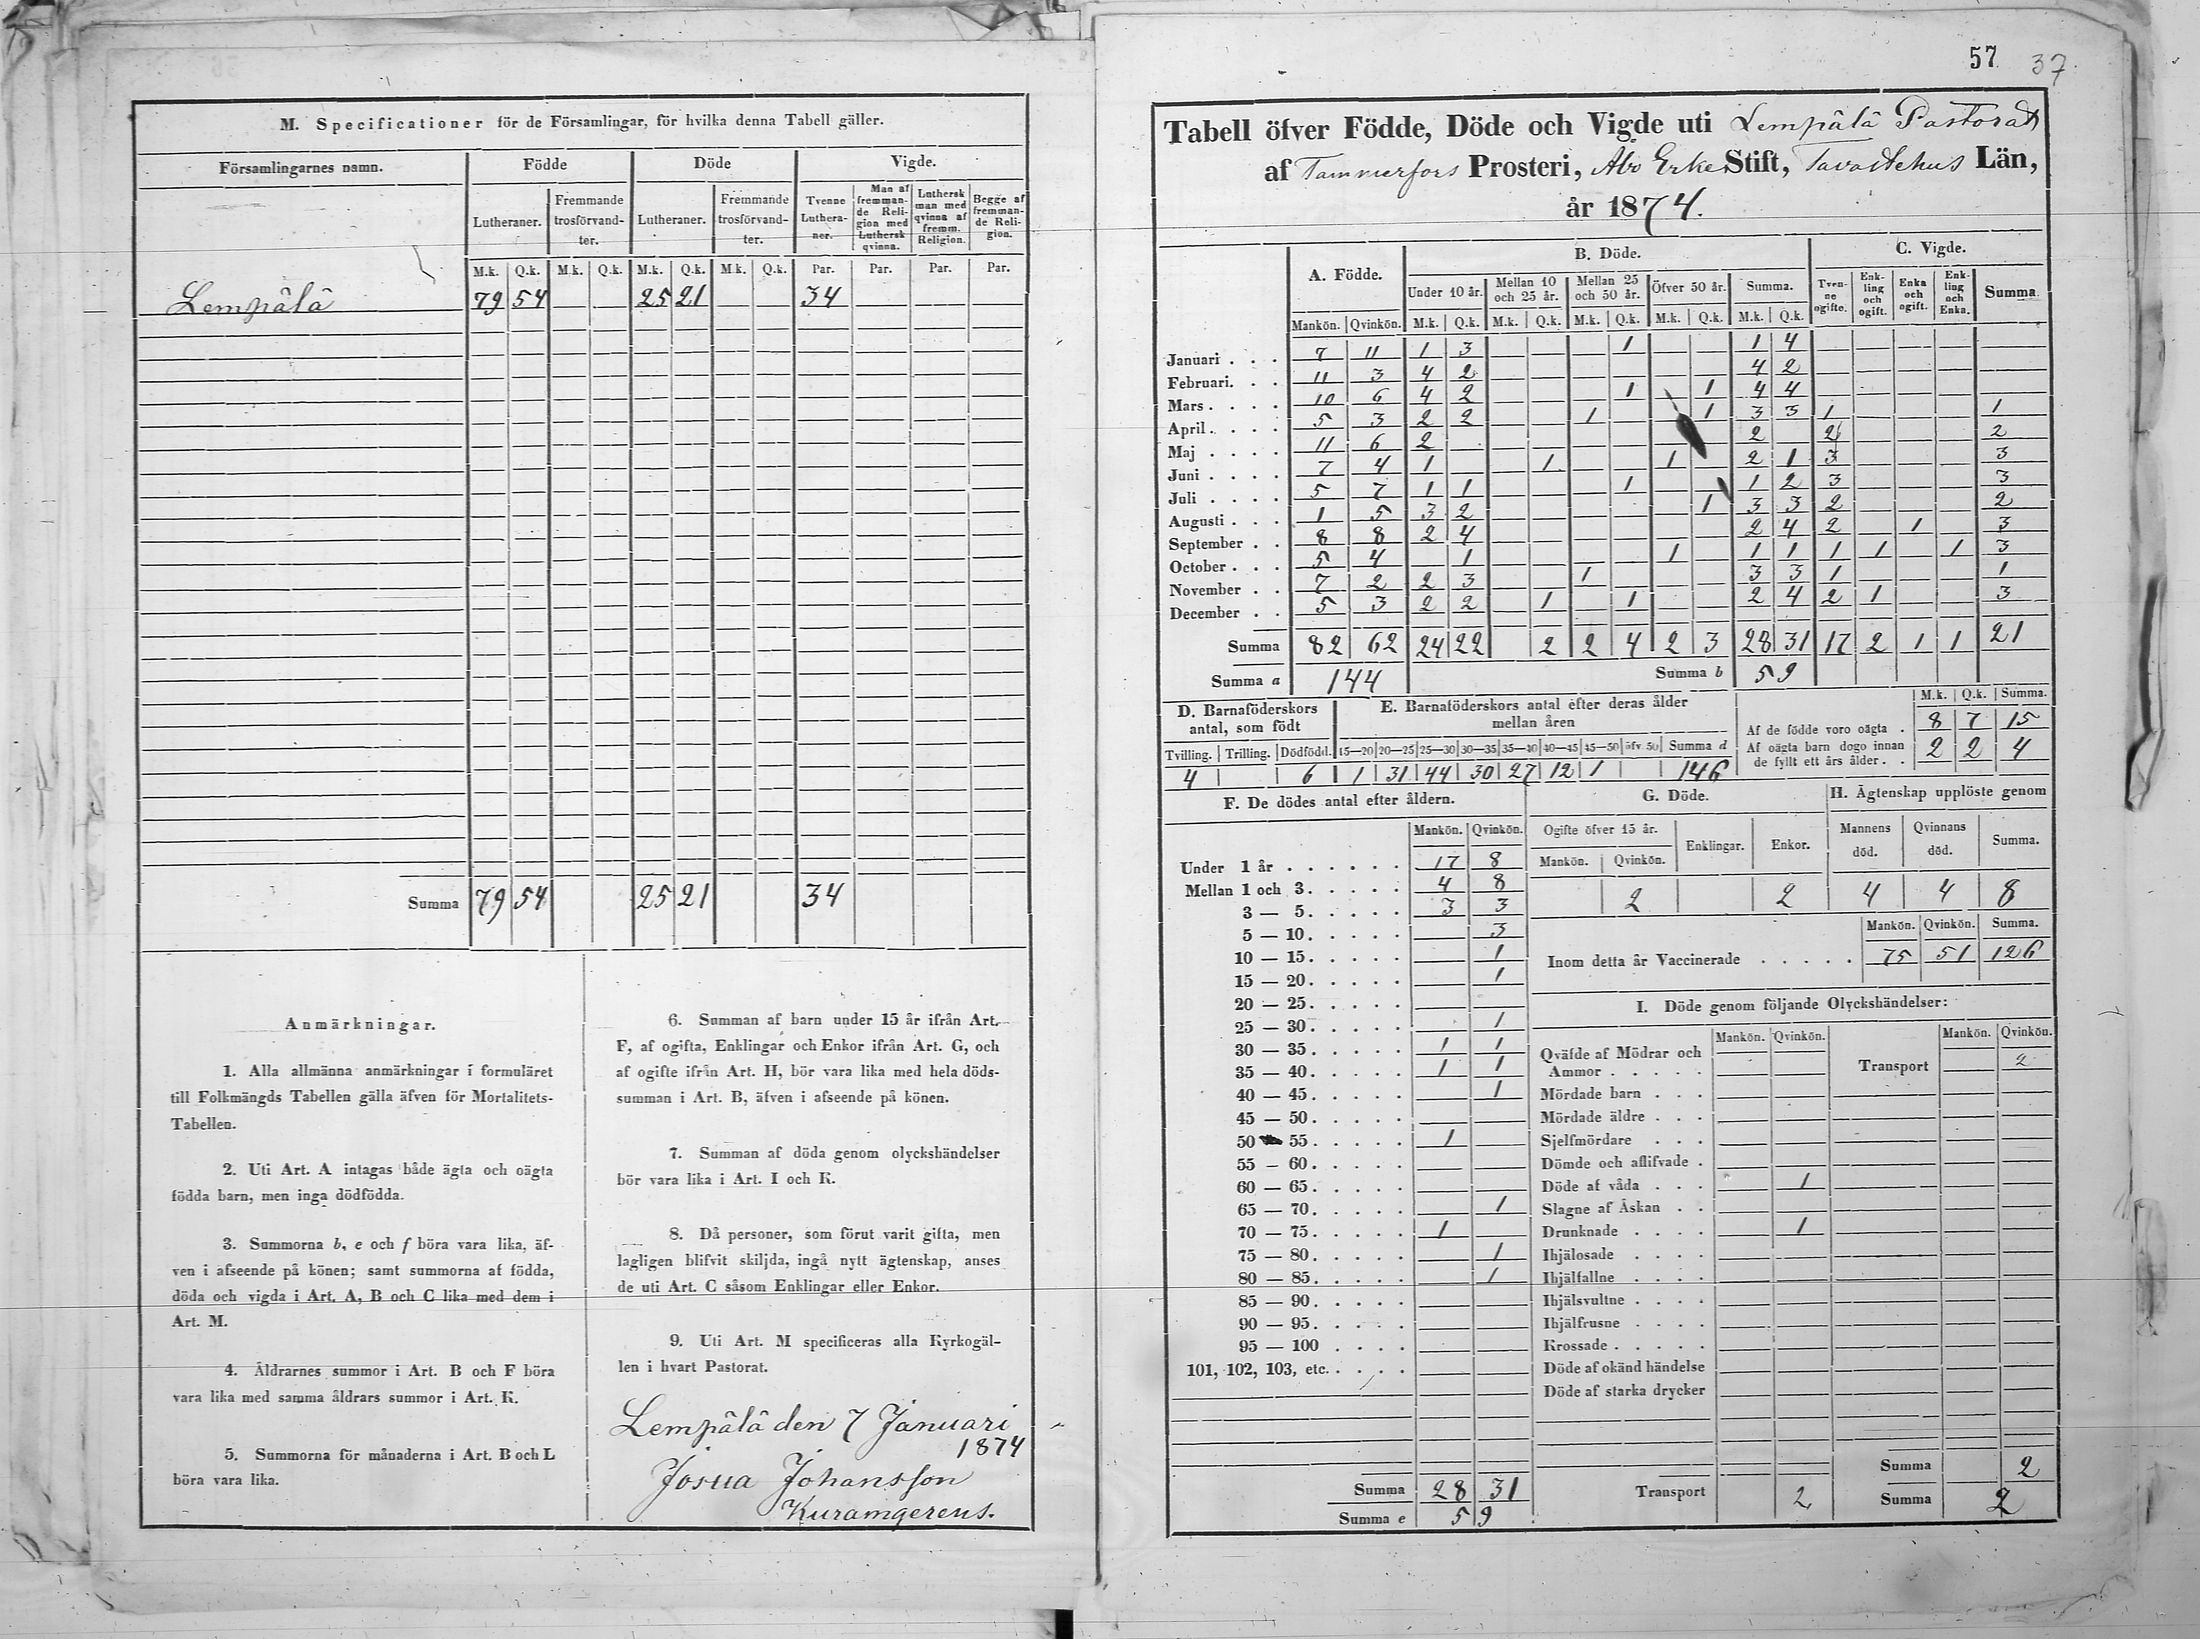 M. Specificationer för de Församlingar, för hvilka denna Tabell gäller.
Församlingarnes namn. Födde Döde Vigde.
Lutheraner. Fremmande trosförvandter. Lutheraner. Fremmande trosförvandter. Tvenne Lutheraner. Man af fremmande Religion med Luthersk qvinna. Luthersk man med qvinna af fremm. Religion. Begge af fremmande Religion.
M.k. Q.k. M.k. Q.k. M.k. Q.k. M.k. Q.k. Par. Par. Par. Par.
Lempälä 79 54 — — 25 21 — — 34 — — —
Summa 79 54 25 21 34
Anmärkningar.
1. Alla allmänna anmärkningar i formuläret
till Folkmängds Tabellen gälla äfven för Mortalitets-
Tabellen.
2. Uti Art. A intagas både ägta och oägta
födda barn, men inga dödfödda.
3. Summorna b, e och f böra vara lika, äf-
ven i afseende på könen; samt summorna af födda,
döda och vigda i Art. A, B och C lika med dem i
Art. M.
4. Åldrarnes summor i Art. B och F böra
vara lika med samma åldrars summor i Art. K.
5. Summorna för månaderna i Art. B och L
böra vara lika.
6. Summan af barn under 15 år ifrån Art.
F, af ogifta, Enklingar och Enkor ifrån Art. G, och
af ogifte ifrån Art. H, bör vara lika med hela döds-
summan i Art. B, äfven i afseende på könen.
7. Summan af döda genom olyckshändelser
bör vara lika i Art. I och K.
8. Då personer, som förut varit gifta, men
lagligen blifvit skiljda, ingå nytt ägtenskap, anses
de uti Art. C såsom Enklingar eller Enkor.
9. Uti Art. M specificeras alla Kyrkogäl-
len i hvart Pastorat.
Lempälä den 7 Januari
1874
Josua Johansson
57 37
Tabell öfver Födde, Döde och Vigde uti Lempälä Pastorat
af Tammerfors Prosteri, Åbo Erke Stift, Tavastehus Län,
år 1874.
A. Födde. B. Döde. C. Vigde.
Under 10 år. Mellan 10 och 25 år. Mellan 25 och 50 år. Öfver 50 år. Summa. Tvenne ogifte. Enkling och ogift. Enka och ogift. Enkling och Enka. Summa
Mankön. Qvinkön. M.k. Q.k. M.k. Q.k. M.k. Q.k. M.k. Q.k. M.k. Q.k.
Januari . . . 7 11 1 3 — — — 1 — — 1 4 — — — — —
Februari. . . 11 3 4 2 — — — — — — 4 2 — — — — —
Mars . . . . 10 6 4 2 — — — 1 — 1 4 4 — — — — —
April . . . . 5 3 2 2 — — 1 — — 1 3 3 1 — — — 1
Maj . . . . 11 6 2 — — — — — — — 2 — 2 — — — 2
Juni . . . . 7 4 1 — — 1 — — 1 — 2 1 3 — — — 3
Juli . . . . 5 7 1 1 — — — 1 — — 1 2 3 — — — 3
Augusti . . . 1 5 3 2 — — — — — 1 3 3 2 — — — 2
September . . 8 8 2 4 — — — — — — 2 4 2 — 1 — 3
October . . . 5 4 — 1 — — — — 1 — 1 1 1 1 — 1 3
November . . 7 2 2 3 — — 1 — — — 3 3 1 — — — 1
December . . 5 3 2 2 — 1 — 1 — — 2 4 2 1 — — 3
Summa 82 62 24 22 2 2 4 2 3 28 31 17 2 1 1 21
Summa a 144 Summa b 59
D. Barnaföderskors antal, som födt
Tvilling. Trilling. Dödfödd.
4 6
E. Barnaföderskors antal efter deras ålder
mellan åren
15—20 20—25 25—30 30—35 35—40 40—45 45—50 öfv. 50 Summa d
1 31 44 30 27 12 1 146
M.k. Q.k. Summa.
Af de födde voro oägta . 8 7 15
Af oägta barn dogo innan
de fyllt ett års ålder . . 2 2 4
F. De dödes antal efter åldern.
Mankön. Qvinkön.
Under 1 år . . . . . . 17 8
Mellan 1 och 3. . . . . 4 8
3 — 5. . . . . 3 3
5 — 10. . . . . — 3
10 — 15. . . . . — 1
15 — 20. . . . . — 1
20 — 25. . . . . — —
25 — 30. . . . . — 1
30 — 35. . . . . 1 1
35 — 40. . . . . 1 1
40 — 45. . . . . — 1
45 — 50. . . . . — —
50 — 55. . . . . 1 —
55 — 60. . . . . — —
60 — 65. . . . . — —
65 — 70. . . . . — 1
70 — 75. . . . . 1 —
75 — 80. . . . . — 1
80 — 85. . . . . — 1
85 — 90. . . . . — —
90 — 95. . . . . — —
95 — 100 . . . . — —
101, 102, 103, etc. . . . . — —
Summa 28 31
Summa e 59
G. Döde.
Ogifte öfver 15 år. Enklingar. Enkor.
Mankön. Qvinkön.
2 2
H. Ägtenskap upplöste genom
Mannens död. Qvinnans död. Summa.
4 4 8
Mankön. Qvinkön. Summa.
Inom detta år Vaccinerade . . . . . 75 51 126
I. Döde genom följande Olyckshändelser:
Mankön. Qvinkön. Mankön. Qvinkön.
Qväfde af Mödrar och
Ammor . . . . . — —
Transport — 2
Mördade barn . . . — —
Mördade äldre . . . — —
Sjelfmördare . . . — —
Dömde och aflifvade . — —
Döde af våda . . . — 1
Slagne af Åskan . . — —
Drunknade . . . . — 1
Ihjälosade . . . . — —
Ihjälfallne . . . . — —
Ihjälsvultne . . . . — —
Ihjälfrusne . . . . — —
Krossade . . . . . — —
Döde af okänd händelse — —
Döde af starka drycker — —
Summa 2
Transport 2 Summa 2